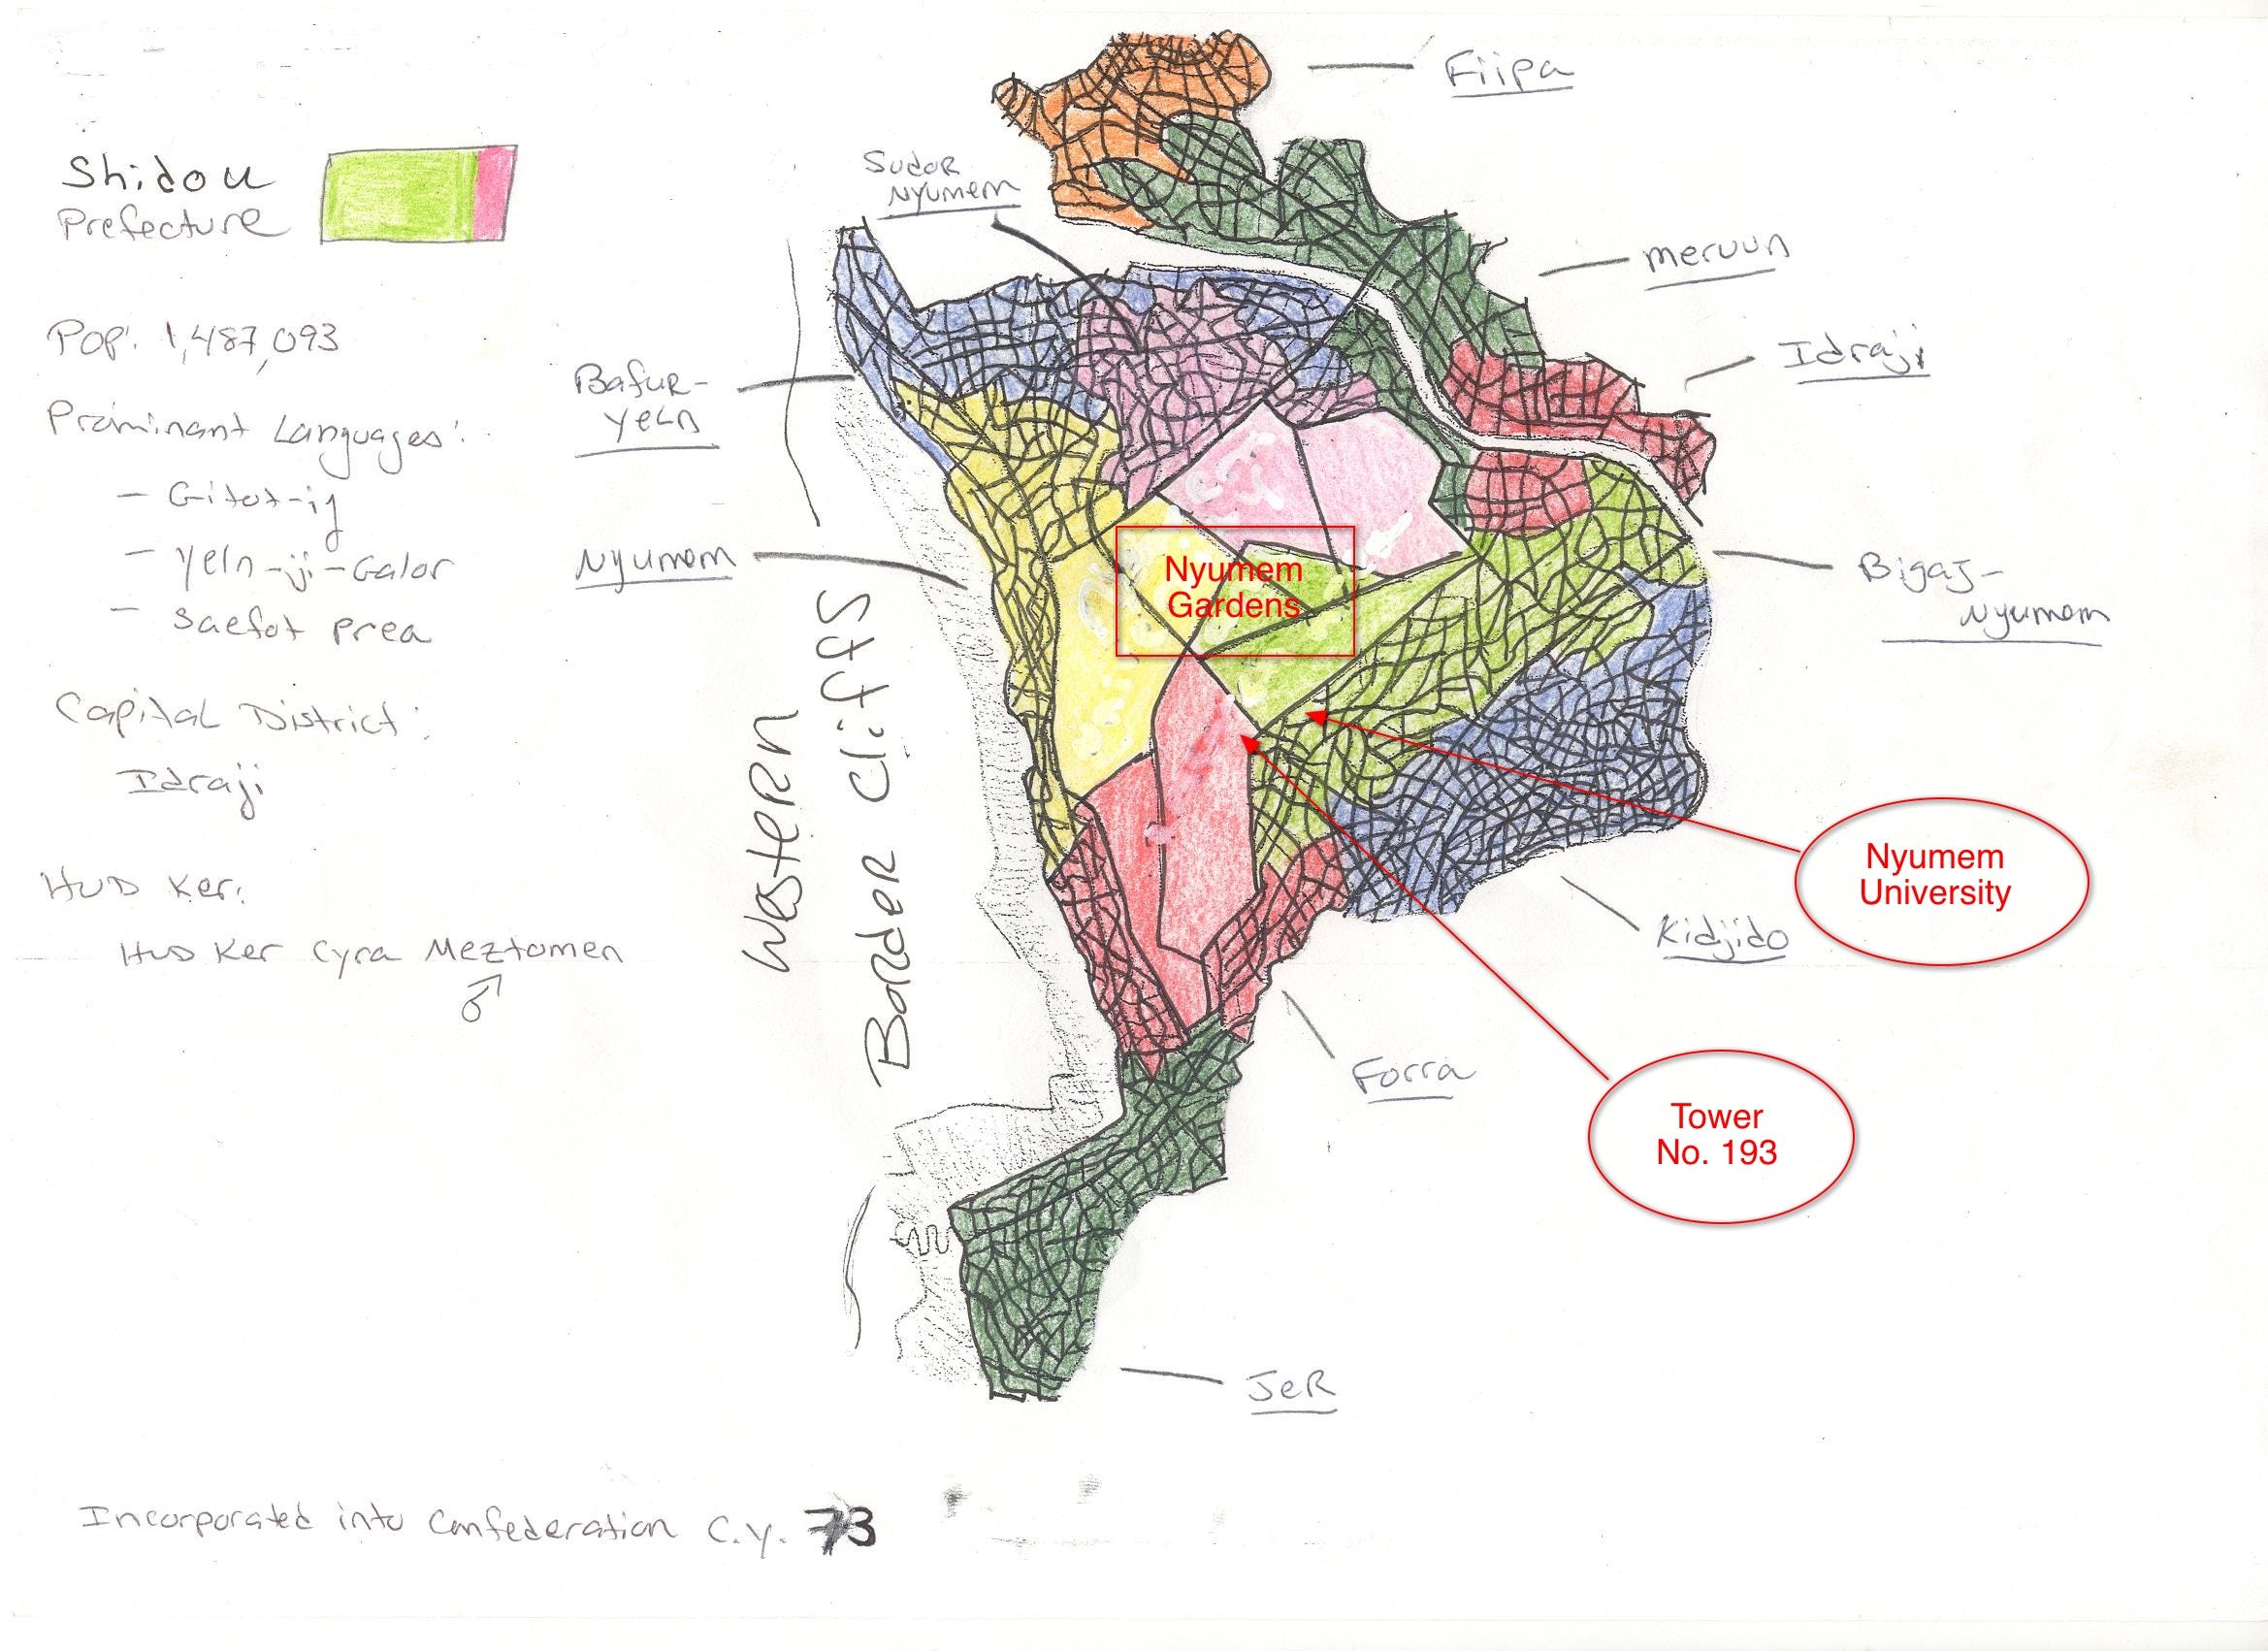 Shidou
Prefecture
Pop: 1,487,093
Prominant Languages:
- Gitot-ij
- Yeln-ji-Galor
- Saefot prea
Capital District:
Idraji
Hud Ker:
Hud Ker Cyra Meztomen
♂
Fiipa
Sudor
Nyumem
Meruun
Idraji
Bafur-
Yeln
Nyumem
Bigaj-
Nyumem
Nyumem
Gardens
Western
Border Cliffs
Nyumem
University
Kidjido
Forra
Tower
No. 193
Jer
Incorporated into Confederation C.Y. 73